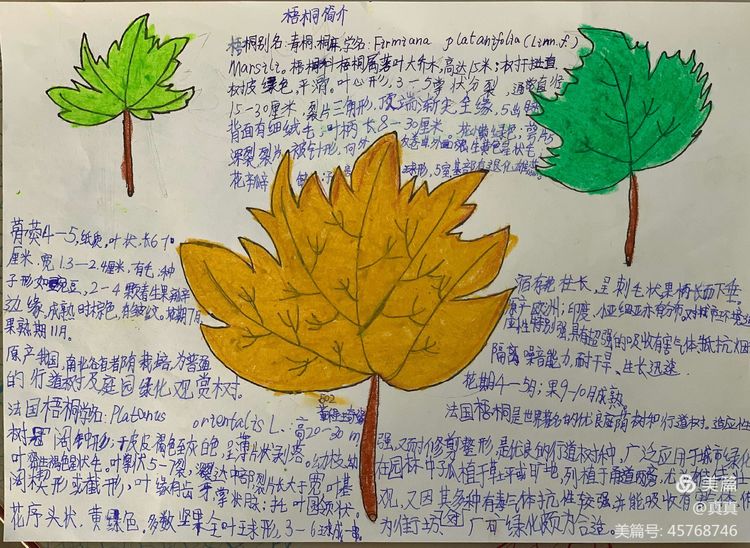 梧桐简介
梧桐别名:青桐、桐麻,学名:Firmiana platanifolia (Linn.f.)
Marsili。梧桐科梧桐属落叶大乔木,高达15米;树干挺直
树皮绿色,平滑。叶心形,3-5掌状分裂,通常直径
15-30厘米,裂片三角形,顶端渐尖,全缘,5出
背面有细绒毛;叶柄长8-30厘米。花小黄绿色;萼片5
深裂,裂片披针形,向外
花药
球形,5室基部有退化雄蕊
蓇葖4-5,纸质,叶状,长6-10
厘米,宽1.3-2.4厘米,有毛;种
子形如豌豆,2-4颗着生果瓣
边缘,成熟时棕色,有皱纹。花期7月
果熟期11月。
原产我国,南北各省都有栽培,为普通
的行道树及庭园绿化观赏树。
法国梧桐学名:Platanus orientalis L.:高20-30m
树冠阔钟形;干皮灰褐色至灰白色,呈薄片状剥落。幼枝、幼
叶密生褐色星状毛。叶掌状5-7裂,深达中部,裂片长大于宽,叶基
阔楔形或截形,叶缘有齿牙,掌状脉;托叶圆领状。
花序头状,黄绿色。多数坚果全叶球形,3-6球成一串
宿存花柱长,呈刺毛状,果柄长而下垂。
原产欧洲;印度、小亚细亚亦有分布。对城市环境适
应性特别强,具有超强的吸收有害气体、抵抗烟
隔离噪音能力,耐干旱、生长迅速
花期4-5旬;果9-10月成熟
法国梧桐是世界著名的优良庭荫树和行道树。适应性
强,又耐修剪整形,是优良的行道树种,广泛应用于城市绿化
在园林中孤植于草坪或旷地,列植于甬道两旁,尤为雄伟壮
观,又因其多种有毒气体抗性较强,并能吸收有害气体,作
为街坊、厂矿绿化颇为合适。
美篇
@真真
美篇号: 45768746